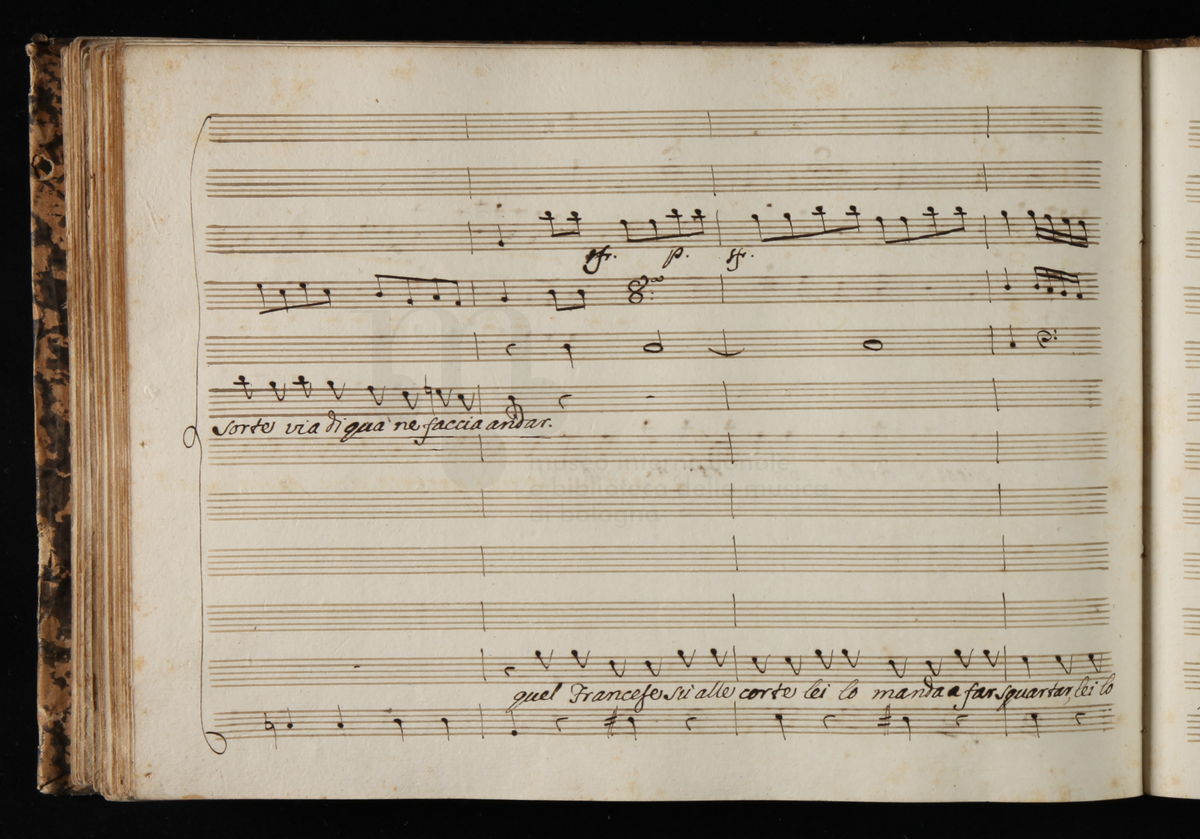 sfr. p. sfr.
sorte via di quà ne faccia andar.
museo internazionale
e biblioteca della musica
di bologna
quel Francese sù alle corte lei lo manda a far squartar, lei lo